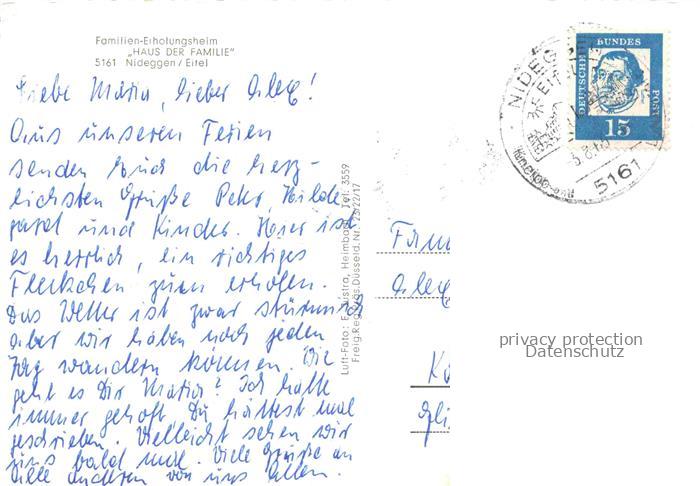 Familien-Erholungsheim
„HAUS DER FAMILIE"
5161 Nideggen/Eifel
Liebe Maria, lieber Alex!
Aus unseren Ferien
senden Euch die herz-
lichsten Grüße Peter, Hilde
gard und Kinder. Hier ist
es herrlich, ein richtiges
Fleckchen zum erholen.
Das Wetter ist zwar stürmisch
aber wir haben noch jeden
Tag wandern können. Wie
geht es Dir Maria? Ich hatte
immer gehofft Du hättest mal
geschrieben. Vielleicht sehen wir
uns bald mal. Viele Grüße an
alle anderen von uns allen.
Luft-Foto: Heimbach, Tel. 3559
Freig. Düsseld. Nr. 19/22/17
NIDEG
5161
DEUTSCHE BUNDES POST
15
Fam
Alex
privacy protection
Datenschutz